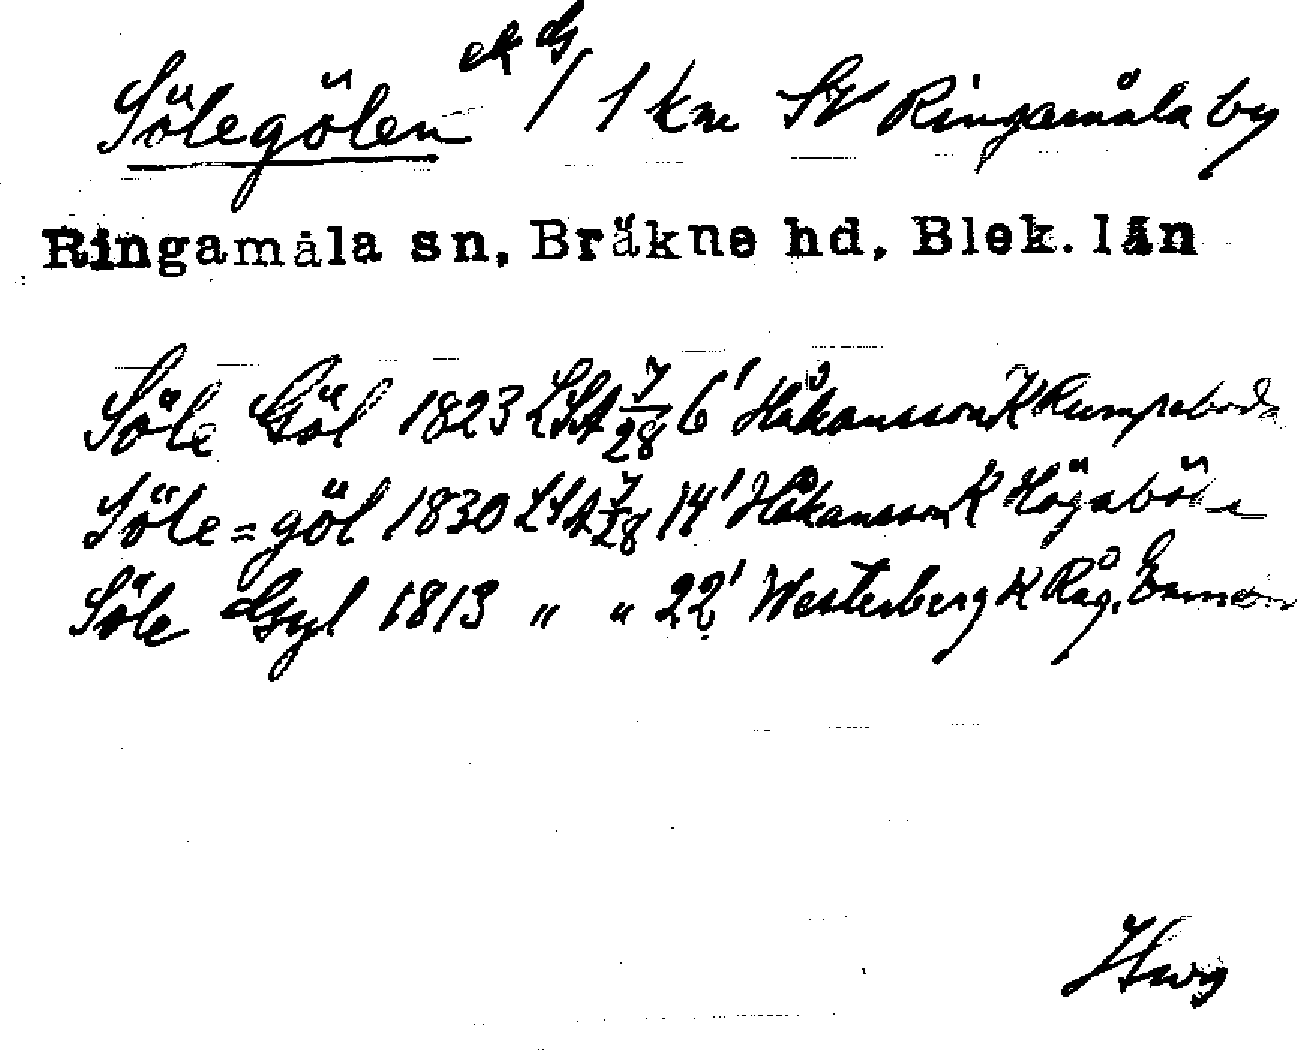 Sölegölen / 1 km SV Ringamåla by
Ringamåla sn, Bräkne hd, Blek. län
Söle Göl 1823 LSA 7/28 6' Håkansson K Rumpeboda
Söle=göl 1830 LSA 7/28 14' Håkansson K Högaböke
Söle Gyl 1813 " " 22' Westerberg K Råg.